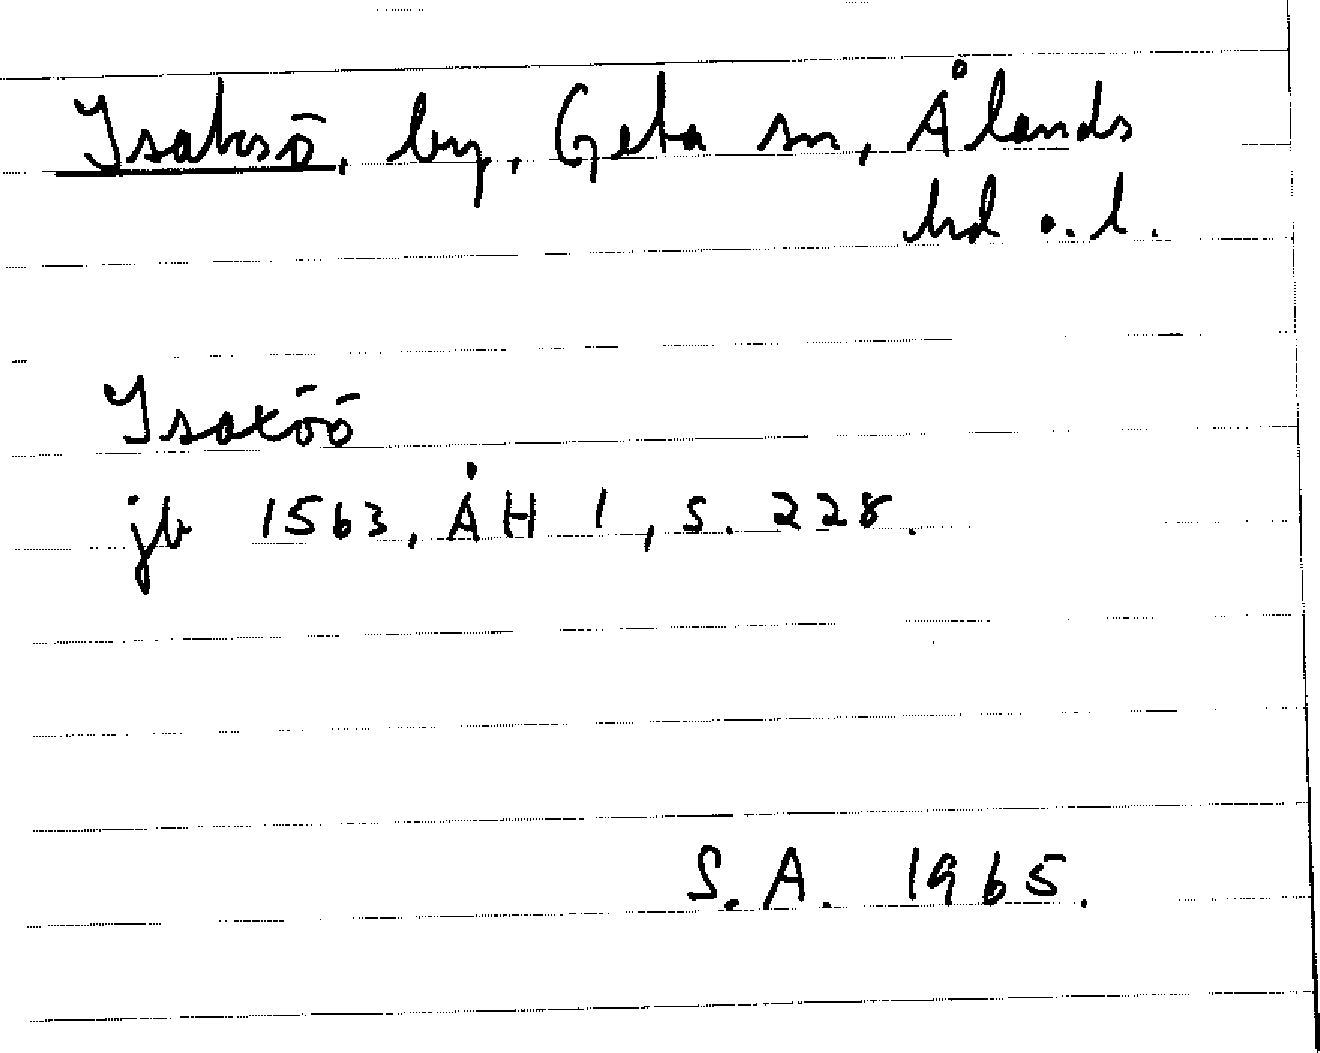 Isaksö, by, Geta sn, Ålands
hd o. l.
Isaxöö
jb 1563, ÅH 1, s. 228.
S.A. 1965.